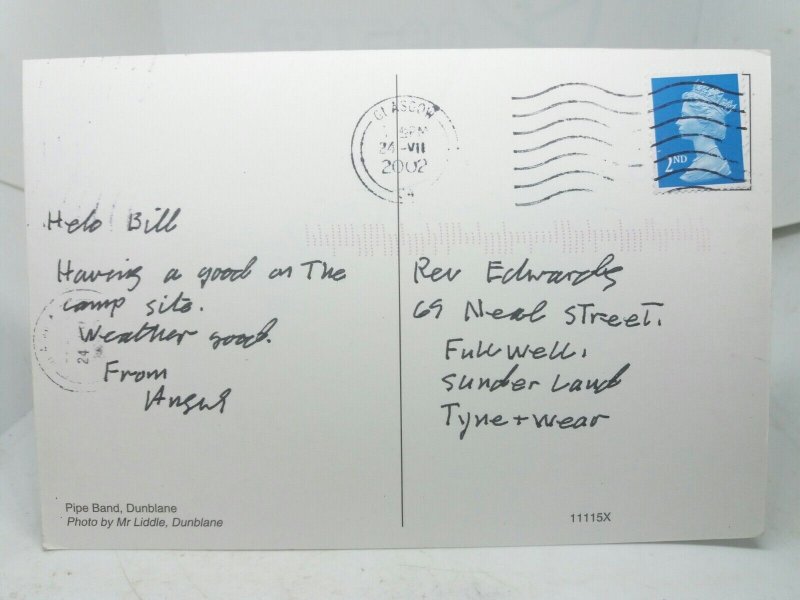 GLASGOW
24 -VII
2002
2ND
Helo Bill
Having a good on The
camp site.
Weather good.
From
Angus
24
Rev Edwards
69 Neal STreeT.
Fullwell.
Sunderland
Tyne + wear
Pipe Band, Dunblane
Photo by Mr Liddle, Dunblane
11115X